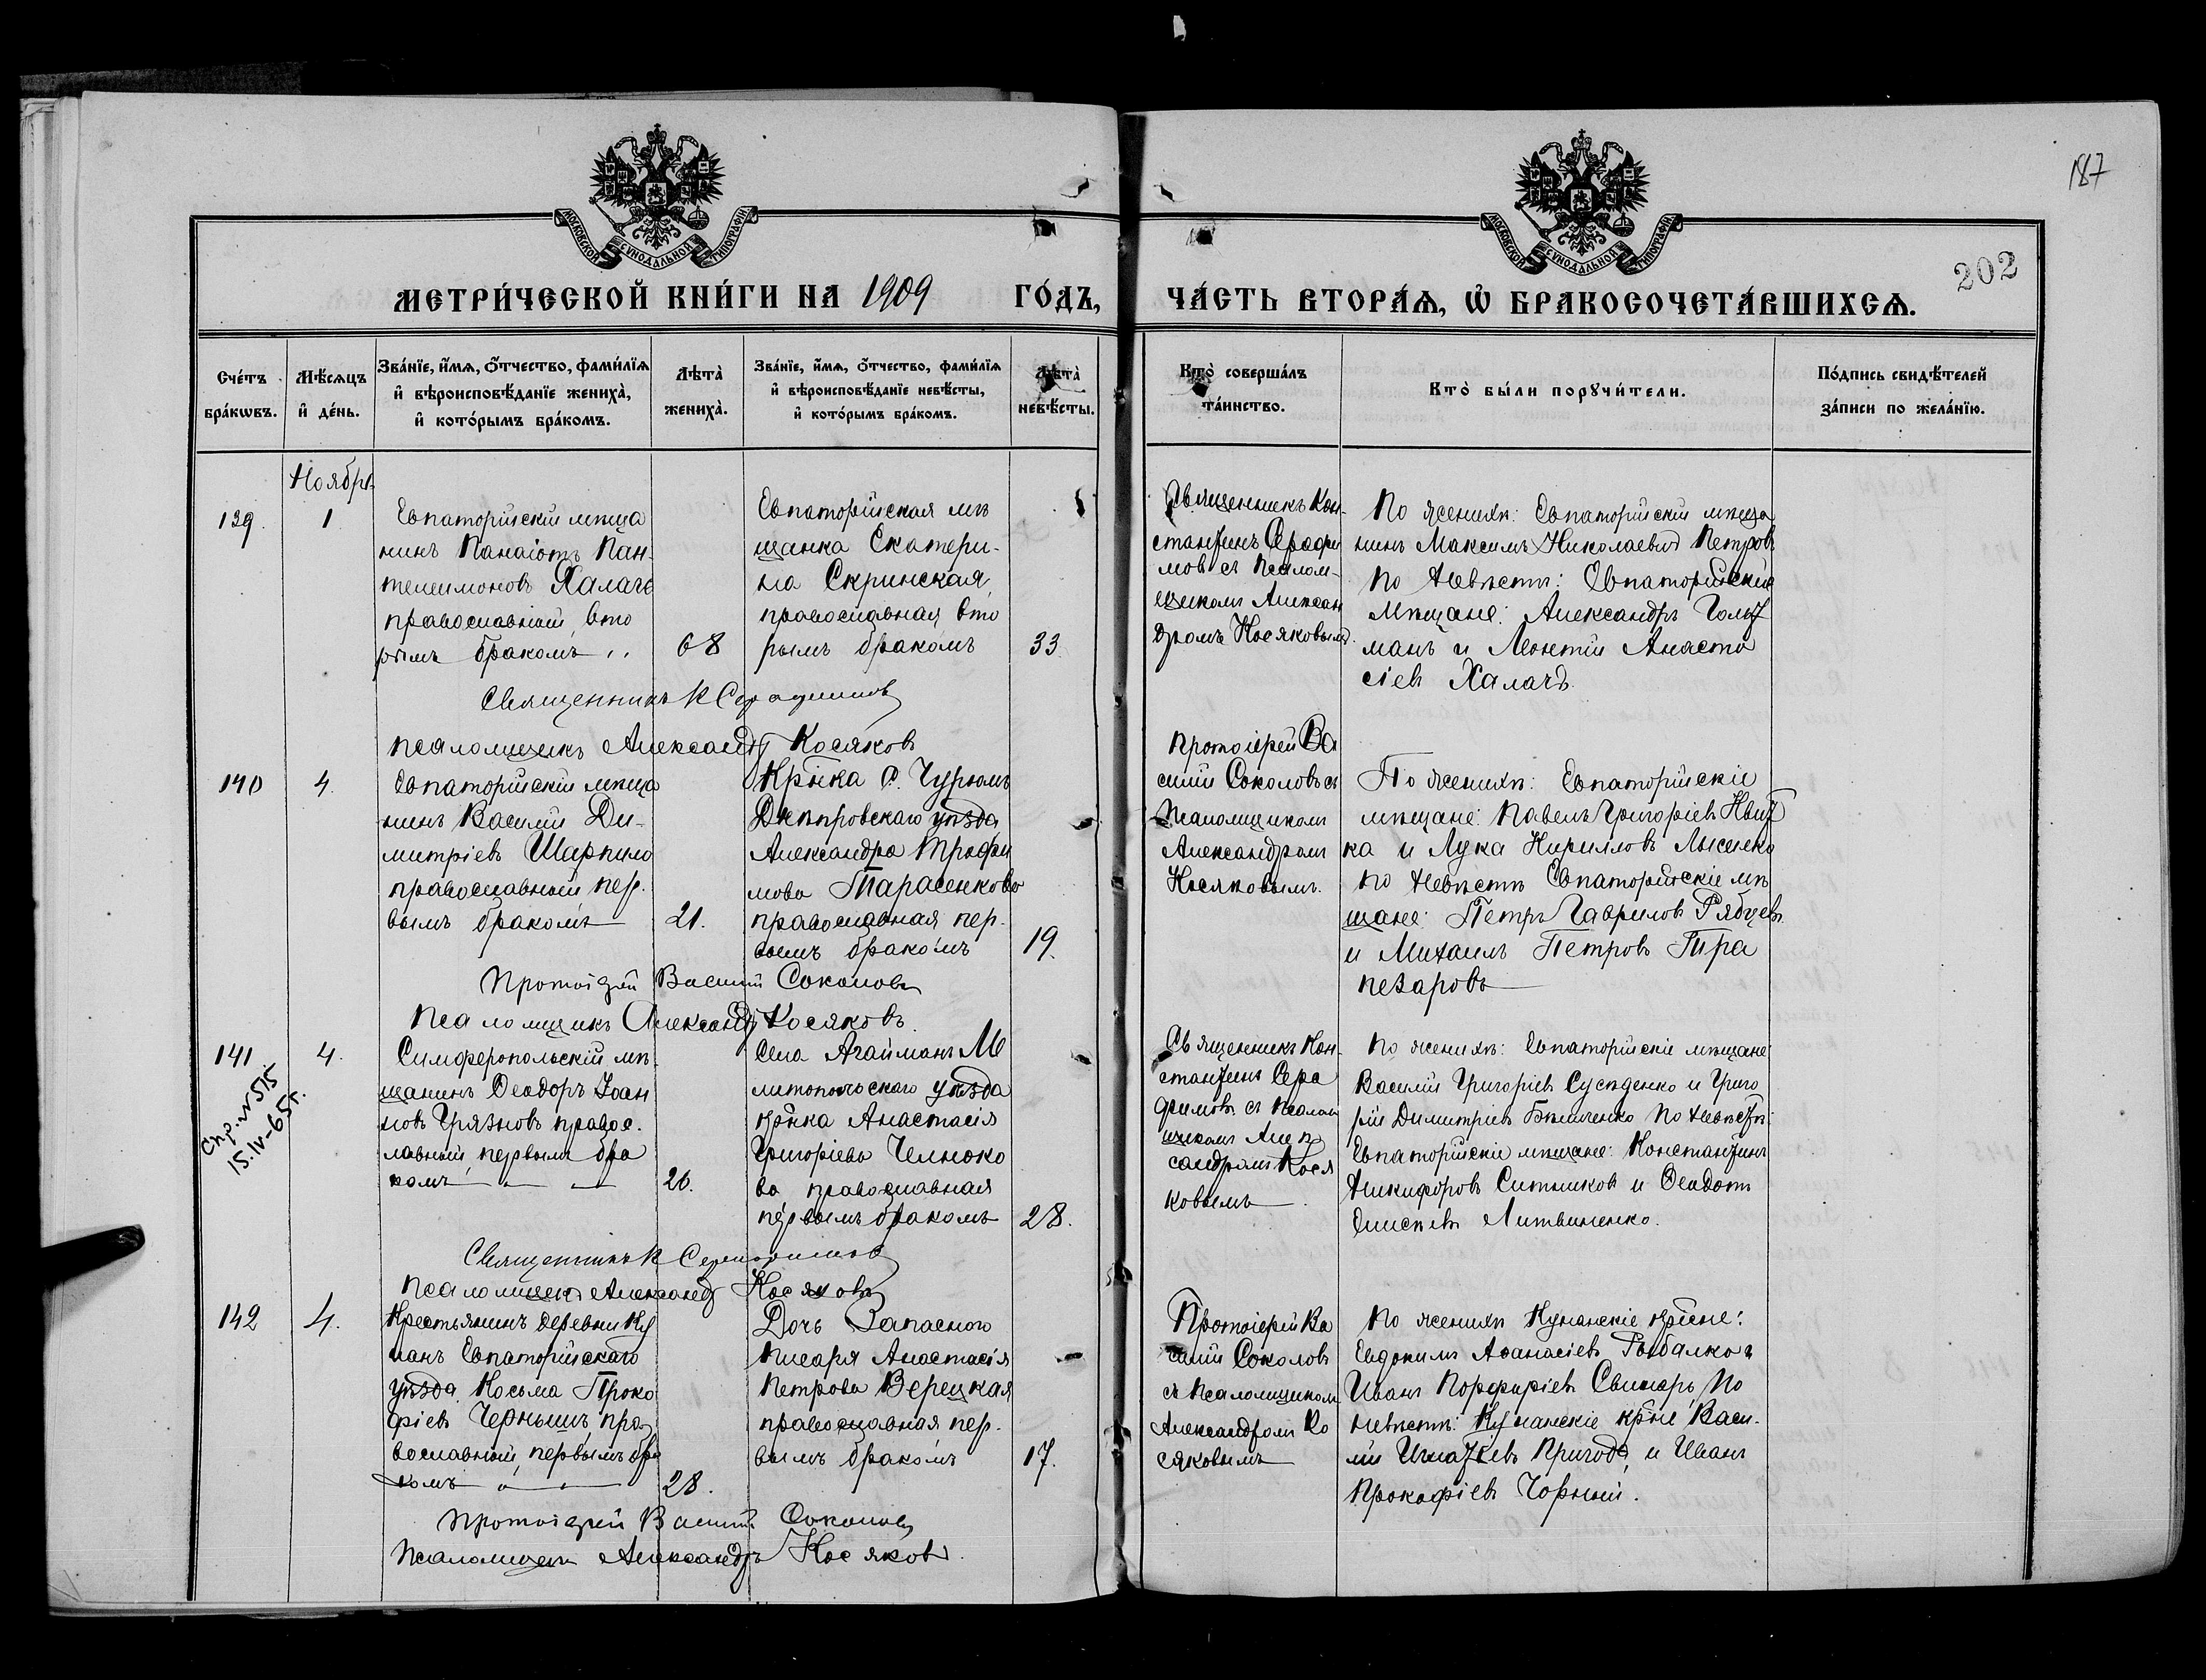 187
202
МОСКОВСКОЙ СѴНОДАЛЬНОЙ ТИПОГРАФІИ.
МОСКОВСКОЙ СѴНОДАЛЬНОЙ ТИПОГРАФІИ.
МЕТРИ́ЧЕСКОЙ КНИ́ГИ НА 1909 ГО́ДЪ,
ЧА́СТЬ ВТОРА́Ѧ, Ѽ БРАКОСОЧЕТА́ВШИХСѦ.
Сче́тъ
бра́кѡвъ.
Мѣ́сѧцъ
и҆ де́нь.
Зва́нїе, и҆́мѧ, ѻ҆́тчество, фами́лїѧ
и҆ вѣроисповѣ́данїе жениха̀,
и҆ кото́рымъ бра́комъ.
Лѣта̀
жениха̀.
Зва́нїе, и҆́мѧ, ѻ҆́тчество, фами́лїѧ
и҆ вѣроисповѣ́данїе невѣ́сты,
и҆ кото́рымъ бра́комъ.
Лѣта̀
невѣ́сты.
Кто̀ соверша́лъ
та́инство.
Кто̀ бы́ли порꙋчи́тели.
По́дпись свидѣ́телей
за́писи по жела́нїю.
Ноябрь
139.
1
Евпаторійскій мѣща
нинъ Панаіотъ Пан-
телеимоновъ Халачъ
православный, вто
рымъ бракомъ
68
Евпаторійская мѣ
щанка Екатери-
на Скринская,
православная вто
рымъ бракомъ
33.
Священникъ Кон-
стантинъ Серафи
мовъ съ Псалом-
щикомъ Алексан
дромъ Косяковымъ.
По женихѣ: Евпаторійскій мѣща
нинъ Максимъ Николаевъ Петровъ
По Невѣстѣ: Евпаторійскіе
Мѣщане: Александръ Гольт
манъ и Леонтій Анаста
сіевъ Халачъ.
Священникъ К Серафимовъ
Псаломщикъ Александръ Косяковъ
140
4.
Евпаторійскій мѣща
нинъ Василій Ди-
митріевъ Шарпило
православный пер-
вымъ бракомъ
21.
Кр̃нка с. Чурюмъ
Днѣпровскаго уѣзда
Александра Трофи
мова Тарасенкова
православная пер-
вымъ бракомъ
19.
Протоіерей Ва
силій Соколовъ съ
Псаломщикомъ
Александромъ
Косяковымъ.
По женихѣ: Евпаторійскіе
мѣщане: Павелъ Григоріевъ Квит
ка и Лука Кирилловъ Лысенко
по Невѣстѣ Евпаторійскіе мѣ
щане: Петръ Гавриловъ Рябцевъ
и Михаилъ Петровъ Тра
пезаровъ
Протоіерей Василій Соколовъ
Псаломщикъ Александръ Косяковъ.
141
4.
Спр. № 515
15.IV-65г.
Симферопольскій мѣ-
щанинъ Ѳеодоръ Іоан
новъ Грязновъ правос-
лавный, первымъ бра
комъ
26.
Села Агайманъ Ме
литопольскаго уѣзда
кр̃нка Анастасія
Григоріева Челноко
ва, православная
первымъ бракомъ
28.
Священникъ Кон-
стантинъ Сера
фимовъ съ Псалом
щикомъ Алек
сандромъ Кося
ковымъ
По женихѣ: Евпаторійскіе мѣщане:
Василій Григоріевъ Сусѣденко и Григо
рій Димитріевъ Бѣличенко По Невѣстѣ:
Евпаторійскіе мѣщане: Константинъ
Никифоровъ Ситниковъ и Ѳеодотъ
Литвиненко.
Священникъ К Серафимовъ
Псаломщикъ Александръ Косяковъ
142
4.
Крестьянинъ деревни Ку
нанъ Евпаторійскаго
уѣзда Косьма Проко
фіевъ Чернышъ, пра
вославный, первымъ бра
комъ
28.
Дочь Запаснаго
Писаря Анастасія
Петрова Верецкая
православная пер-
вымъ бракомъ
17.
Протоіерей Ва
силій Соколовъ
съ Псаломщикомъ
Александромъ Ко
сяковымъ
По женихѣ Кунанскіе кр̃не:
Евдокимъ Аѳанасіевъ Рыбалко и
Иванъ Порфиріевъ Свинарь, По
невѣстѣ: Кунанскіе кр̃не Васи-
лій Игнатіевъ Пригода и Иванъ
Прокофіевъ Чорный.
Протоіерей Василій Соколовъ
Псаломщикъ Александръ Косяковъ.